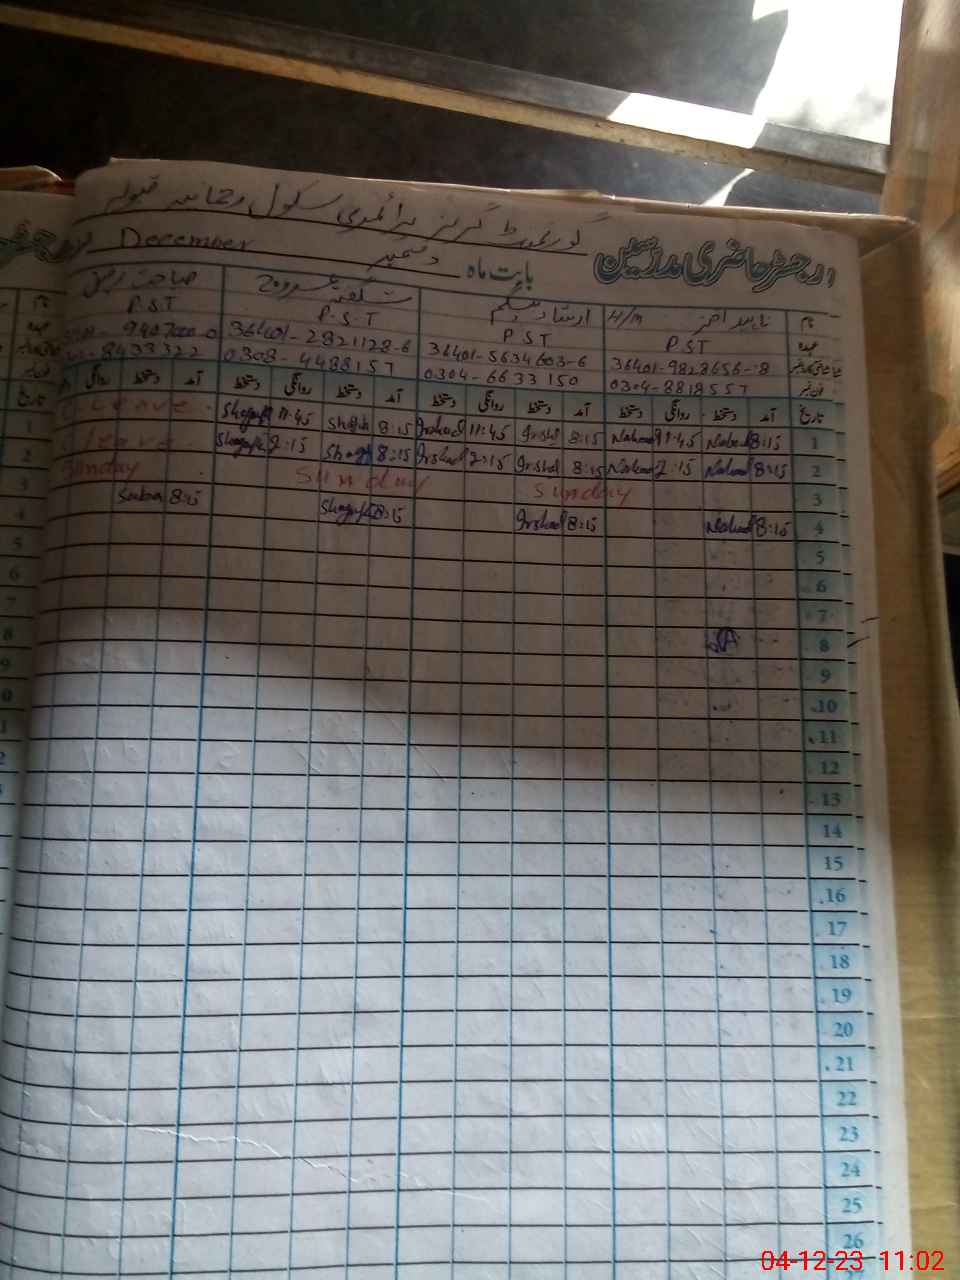 گورنمنٹ گرلز پرائمری سکول رحمانیہ قبولہ
رجسٹر حاضری مدرسین بابت ماہ دسمبر December
نام ناہید اختر H/M ارشاد بیگم شگفتہ
عہدہ PST PST P.S.T P.S.T
36401-9828656-8 36401-5634603-6 36401-2821128-6
0304-8818557 0304-6633150 0308-4488157 8433322
تاریخ آمد دستخط روانگی دستخط آمد دستخط روانگی دستخط آمد دستخط روانگی دستخط آمد دستخط روانگی
1 8:15 Naheed 11:45 Naheed 8:15 Irshad 11:45 Irshad 8:15 Shagufta 11:45 Shagufta Leave
2 8:15 Naheed 2:15 Naheed 8:15 Irshad 2:15 Irshad 8:15 Shagufta 2:15 Shagufta Leave
3 Sunday Sunday Sunday
4 8:15 Naheed 8:15 Irshad 8:15 Shagufta 8:15 Saba
5
6
7
8
9
10
11
12
13
14
15
16
17
18
19
20
21
22
23
24
25
26
04-12-23 11:02